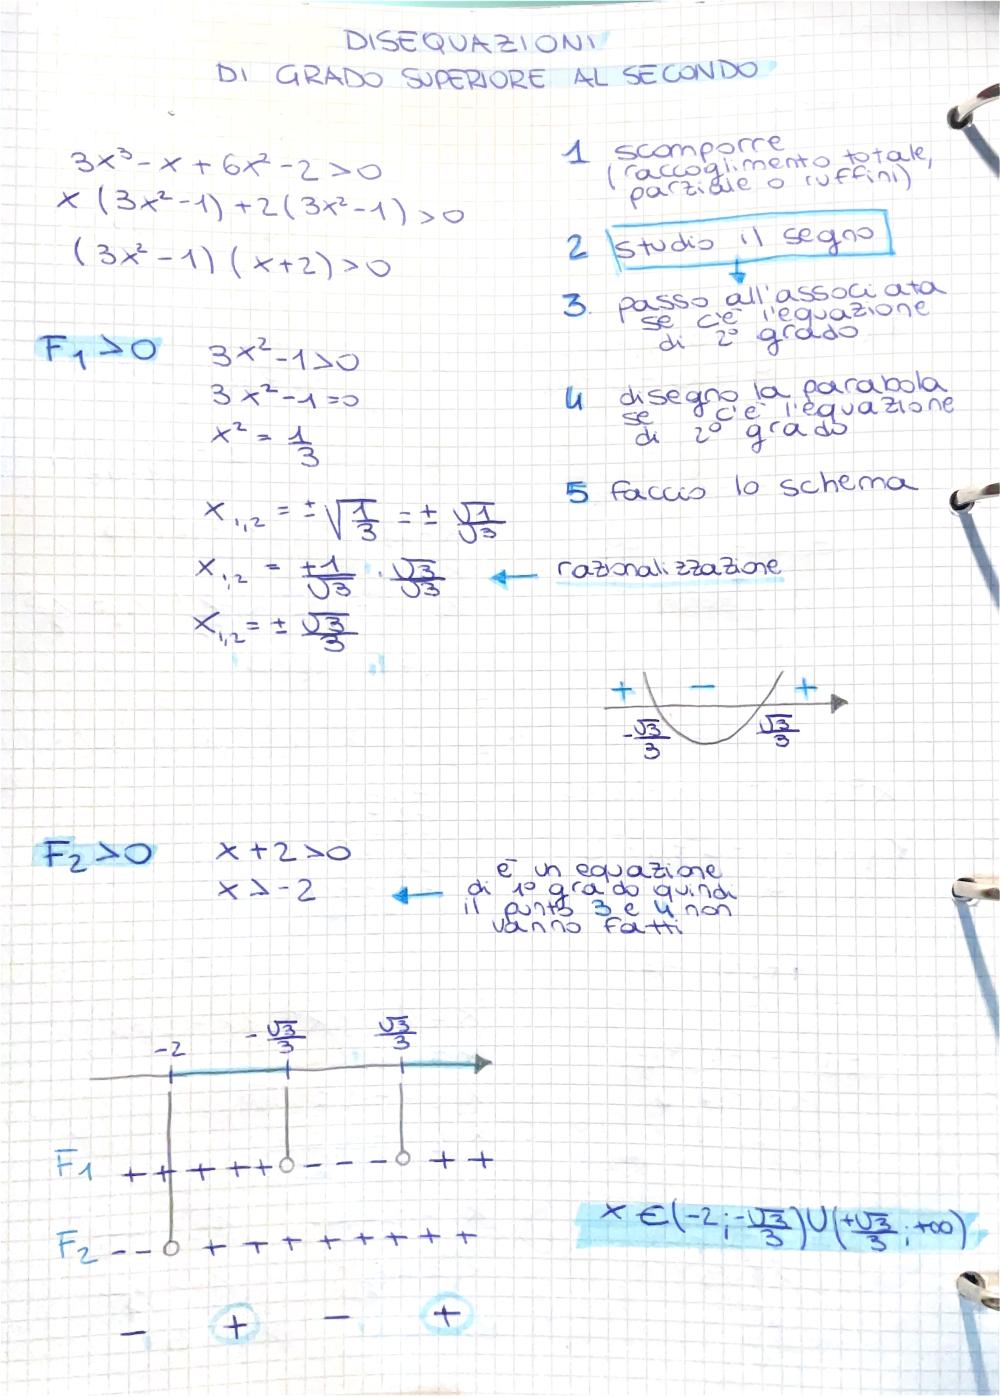 DISEQUAZIONI
DI GRADO SUPERIORE AL SECONDO
3x³-x+6x²-2>0
x(3x²-1)+2(3x²-1)>0
(3x²-1)(x+2)>0
1 scomporre
(raccoglimento totale,
parziale o ruffini)
2 studio il segno
3. passo all'associata
se c'è l'equazione
di 2° grado
4 disegno la parabola
se c'è l'equazione
di 2° grado
5 faccio lo schema
F₁>0
3x²-1>0
3x²-1=0
x² = 1/3
x₁,₂ = ±√(1/3) = ± √1/√3
x₁,₂ = ±1/√3 · √3/√3 ← razionalizzazione
x₁,₂ = ± √3/3
+ - +
-√3/3 √3/3
F₂>0
x+2>0
x>-2
← è un equazione
di 1° grado quindi
il punto 3 e 4 non
vanno fatti
-2 -√3/3 √3/3
F₁ + + + + + - - - + +
F₂ - - + + + + + + + +
- + - +
x∈(-2;-√3/3)∪(+√3/3;+∞)